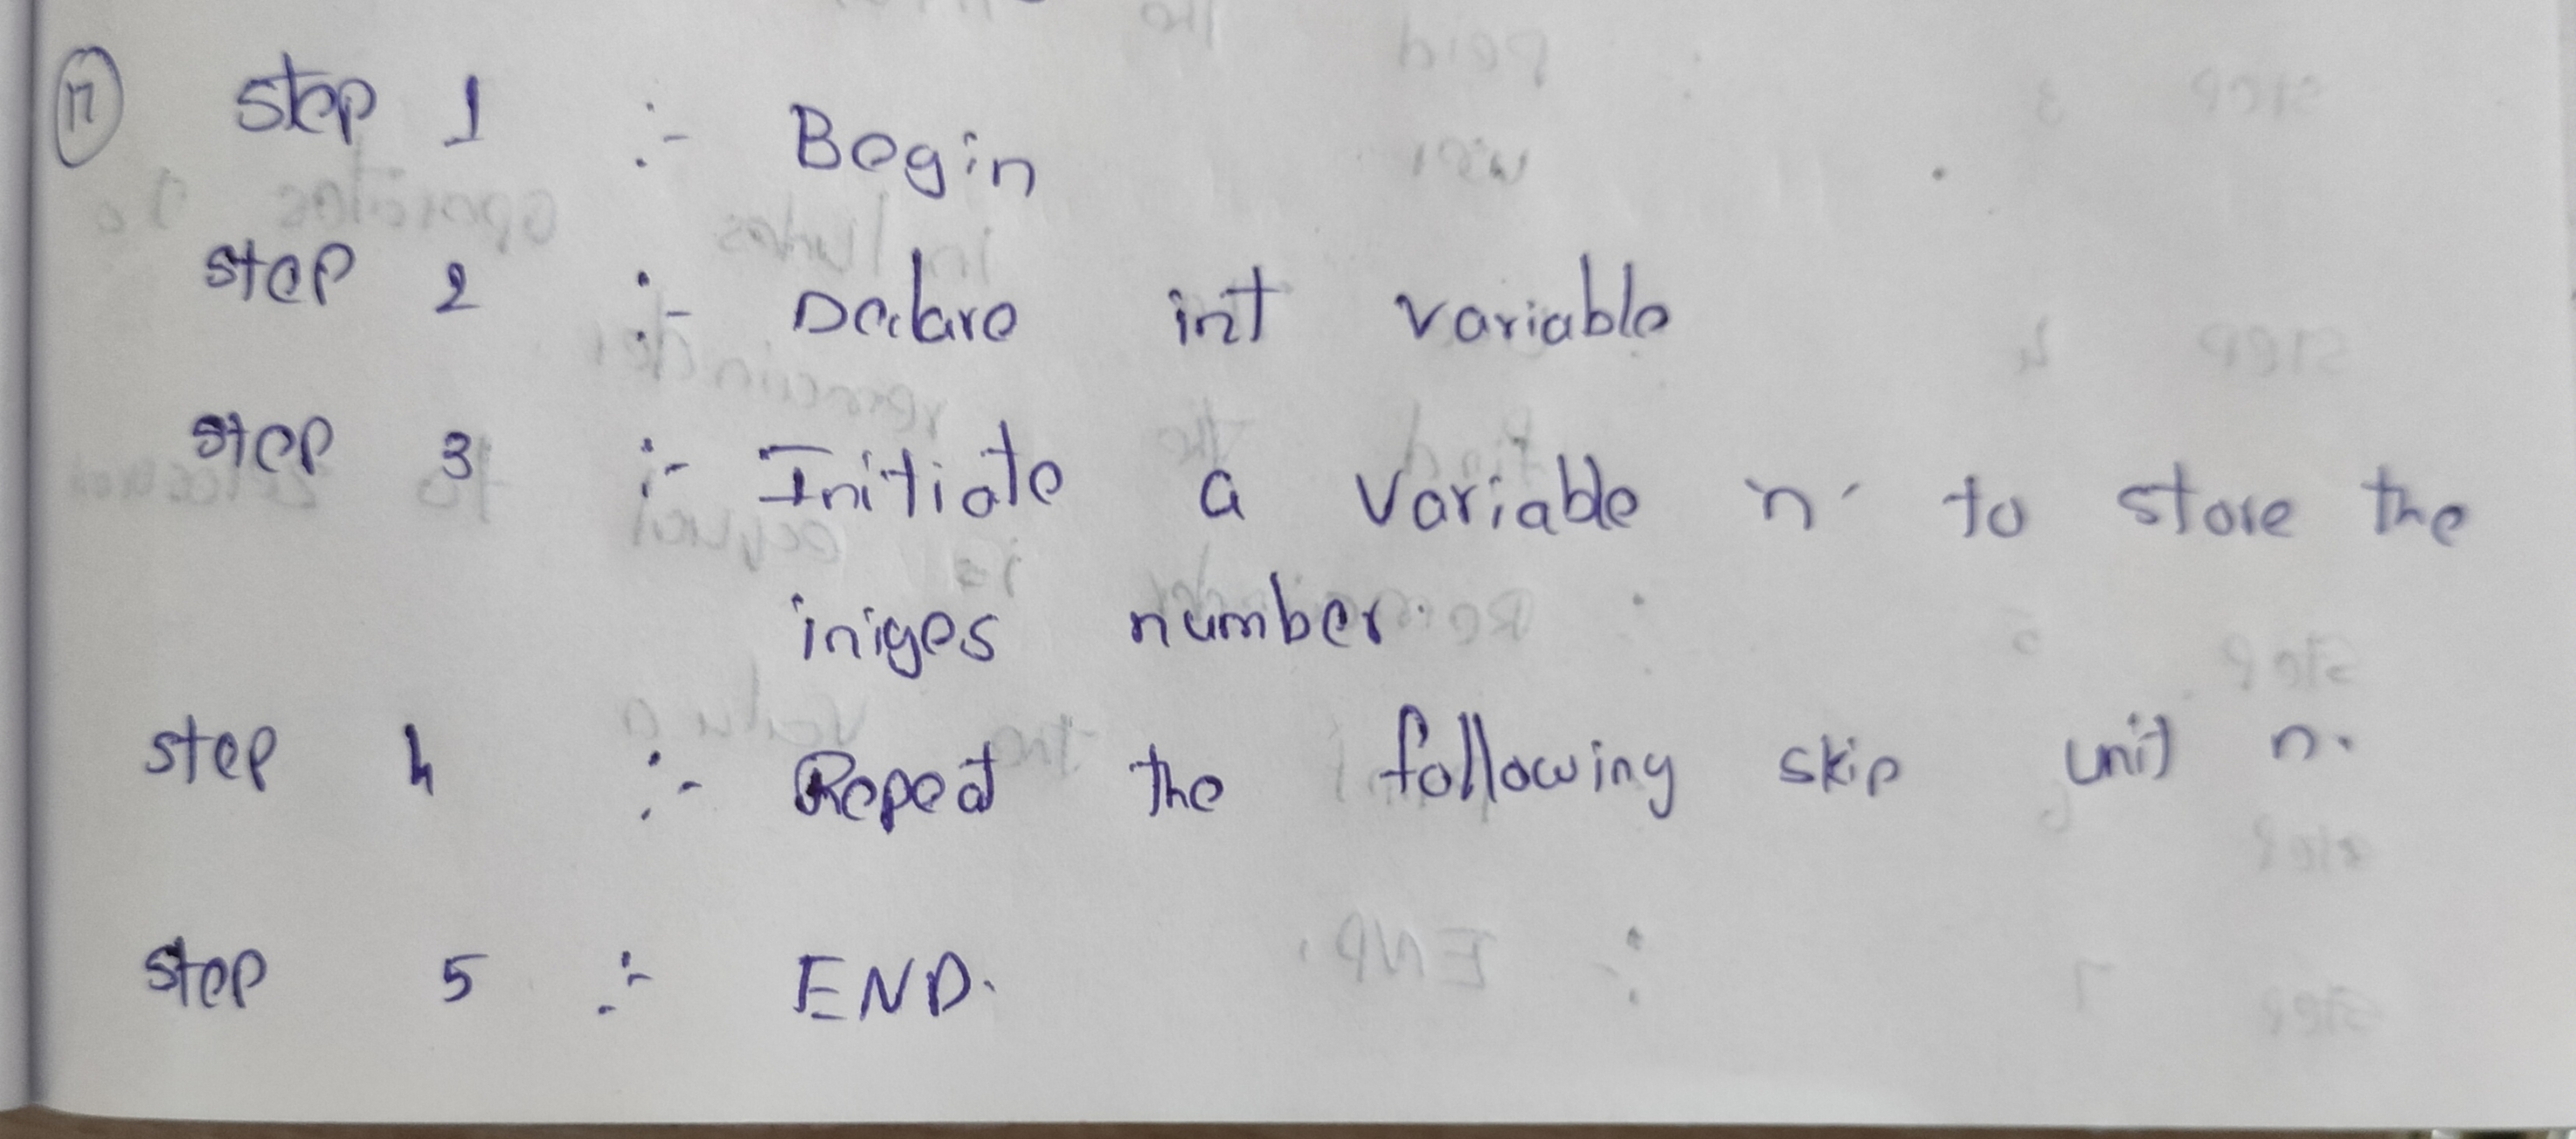 17 step 1 :- Begin
step 2 :- Declare int variable
step 3 :- Initiate a variable 'n' to store the
iniges number.
step 4 :- Repeat the following skip unit n.
step 5 :- END.